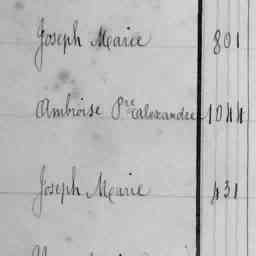 Joseph Marie 801
Ambroise Pre Alexandre 1044
Joseph Marie 431